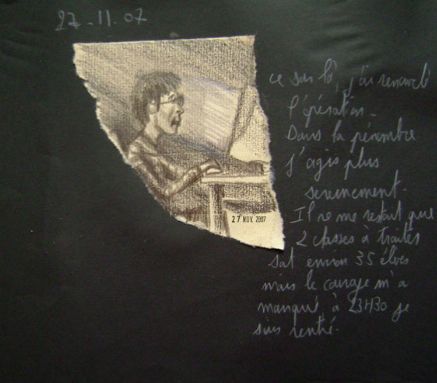 27-11-07
ce soir là, j'ai renouvelé
l'opération.
Dans la pénombre
j'agis plus
sereinement.
Il ne me restait que
2 classes à traiter
soit environ 35 élèves
mais le courage m'a
manqué, à 23H30 je
suis rentré.
27 NOV. 2007